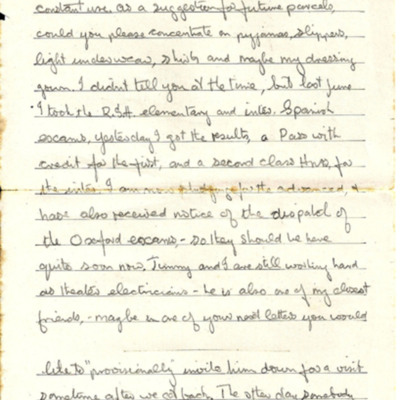 constant use. as a suggestion for future parcels,
could you please concentrate on pyjamas, slippers,
light underwear, shirts and maybe my dressing
gown. I didn't tell you at the time, but last June
I took the R.S.A. elementary and inter. Spanish
exams, yesterday I got the results, a Pass with
credit for the first, and a second class Hons, for
the inter. I am now studying for the advanced, &
have also received notice of the dispatch of
the Oxford exams, - so they should be here
quite soon now. Jimmy and I are still working hard
as theatre electricians - he is also one of my closest
friends, - maybe in one of your next letters you would
like to "provisionally" invite him down for a visit
sometime after we get back. The other day somebody